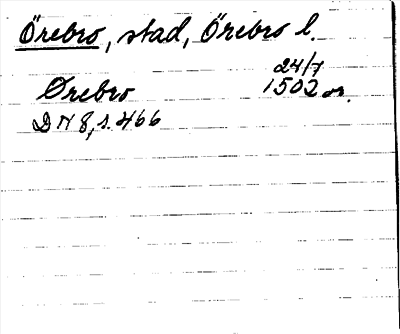 Örebro, stad, Örebro l.
24/7
Ørebro 1502 or.
DN 8, s. 466